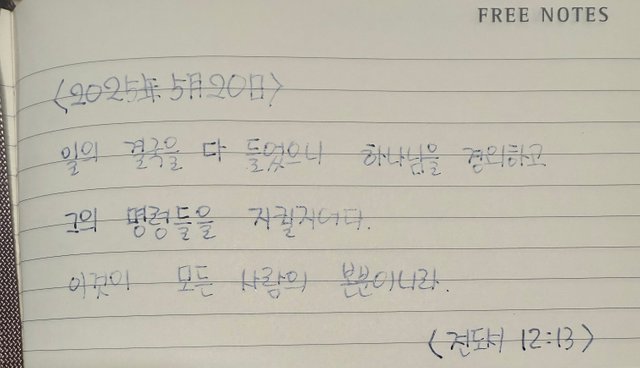 FREE NOTES
<2025年 5月 20日>
일의 결국을 다 들었으니 하나님을 경외하고
그의 명령들을 지킬지어다.
이것이 모든 사람의 본분이니라.
<전도서 12:13>